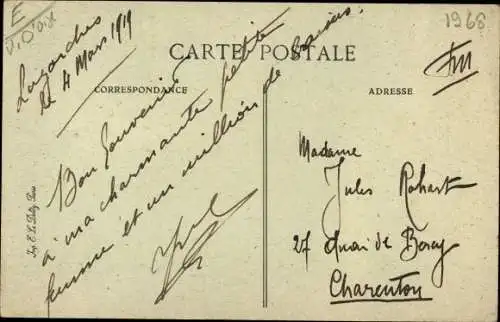 E
V. D'Oise
1968
FM
CARTE POSTALE
CORRESPONDANCE
ADRESSE
Luzarches
le 4 Mars 1919
Bon Souvenir
à ma charmante petite
femme et un million de baisers.
Madame
Jules Rohart
27 Quai de Bercy
Charenton
Imp. E. Le Deley, Paris